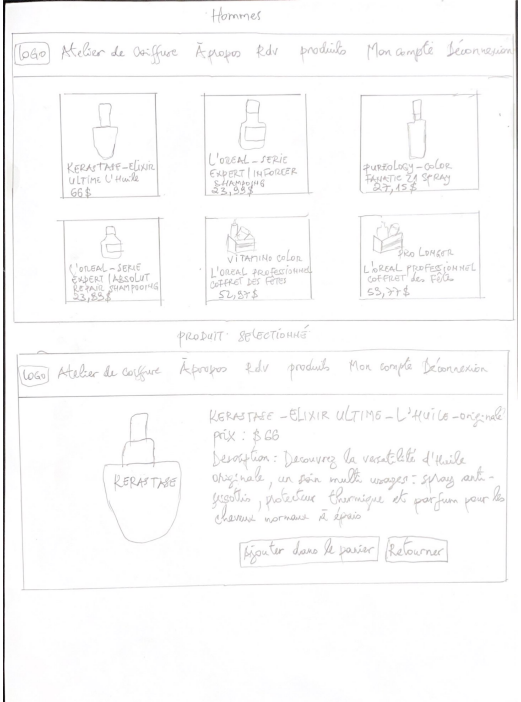 Hommes
LOGO Atelier de Coiffure Àpropos Rdv produits Mon compte Déconnexion
KERASTASE-ELIXIR
ULTIME L'Huile
66$
L'OREAL-SERIE
EXPERT | INFORCER
SHAMPOING
23,99$
PUREOLOGY-COLOR
FANATIC 21 SPRAY
27,15$
L'OREAL-SERIE
EXPERT | ABSOLUT
REPAIR SHAMPOING
23,99$
VITAMINO COLOR
L'OREAL PROFESSIONNEL
COFFRET DES FÊTES
52,97$
PRO LONGER
L'OREAL PROFESSIONNEL
COFFRET des Fêtes
59,77$
PRODUIT SELECTIONNÉ
LOGO Atelier de coiffure Àpropos Rdv produits Mon compte Déconnexion
KERASTASE
KERASTASE-ELIXIR ULTIME-L'HUILE-originale
prix : $66
Description : Decouvrez la versatilité d'Huile
originale, un soin multi usages : spray anti-
frisottis, protecteur thermique et parfum pour les
cheveux normaux à épais
Ajouter dans le panier Retourner